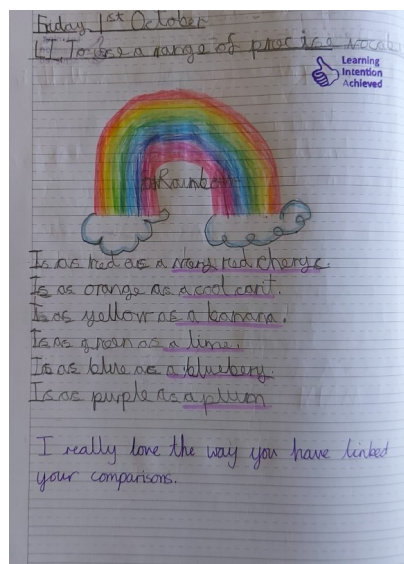 Friday 1st October
LI To use a range of precise vocab
Learning
Intention
Achieved
Rainbow
Is as red as a very red cherye.
Is as orange as a cool carit.
Is as yellow as a banana.
Is as green as a lime.
Is as blue as a bluebery.
Is as purple as a plum
I really love the way you have linked
your comparisons.